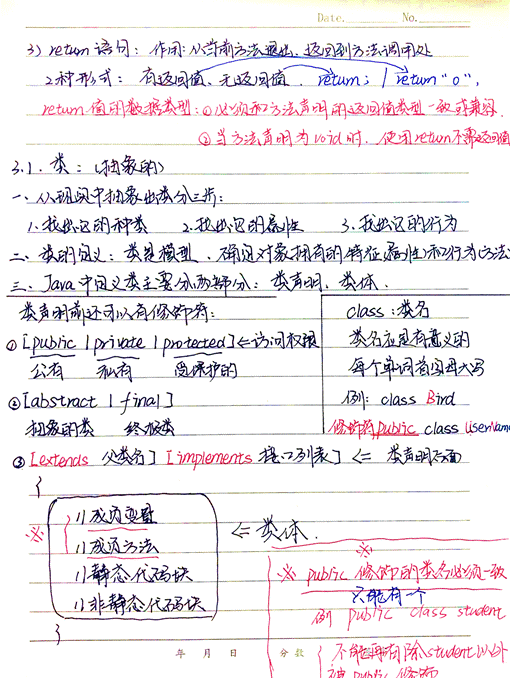 Date. No.
3) return 语句：作用：从当前方法退出、返回到方法调用处
2种形式：有返回值、无返回值. return; / return "0",
return 值的数据类型：① 必须和方法声明的返回值类型一致或兼容.
② 当方法声明为void时. 使用return不需返回值
3.1. 类：(抽象的)
一、从现实中抽象出类分三步：
1.找出它的种类 2.找出它的属性 3.找出它的行为
二、类的定义：类是模型、确定对象拥有的特征(属性)和行为(方法
三、Java中定义类主要分两部分：类声明、类体.
类声明前还可以有修饰符：
①[public | private | protected] ⇐访问权限
公有 私有 受保护的
②[abstract | final]
抽象的类 终极类
class：类名
类名应是有意义的
每个单词首字母大写
例：class Bird
修饰符public class UserName
③[extends 父类名] [implements 接口列表] ⇐ 类声明后面
{
※ //成员变量
//成员方法
//静态代码块
//非静态代码块
}
⇐ 类体.
※
※ public 修饰的类名必须一致
只能有一个
例 public class student
{ 不能再有除student以外
被public修饰
年 月 日 分数